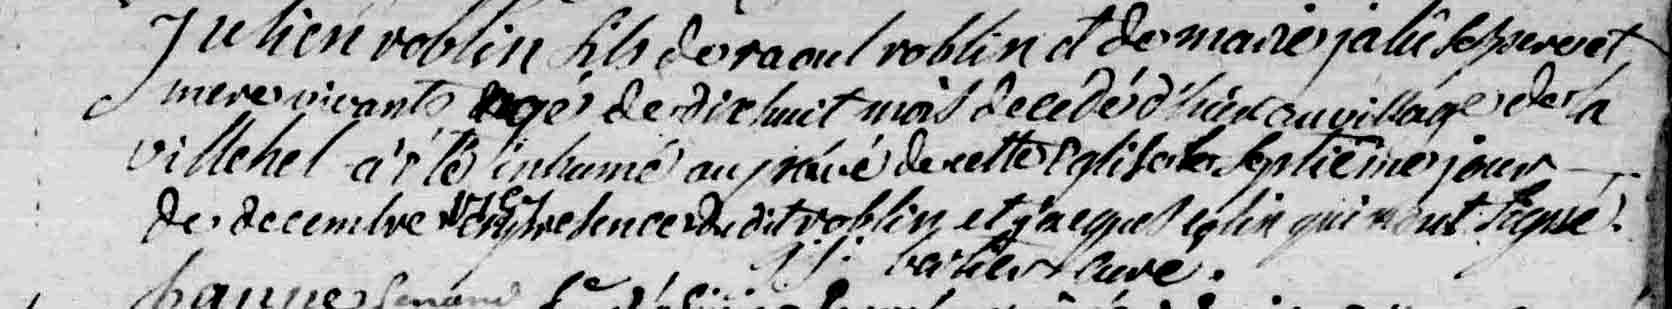 Julien roblin fils de raoul roblin et de marie jalu ses pere et
mere vivants agé de dix huit mois decedé d'hier au village de la
villehel a été inhumé au prévé de cette eglise le septieme jour
de decembre en presence dudit roblin et jacques eslin qui n'ont signé.
j.j. curé.